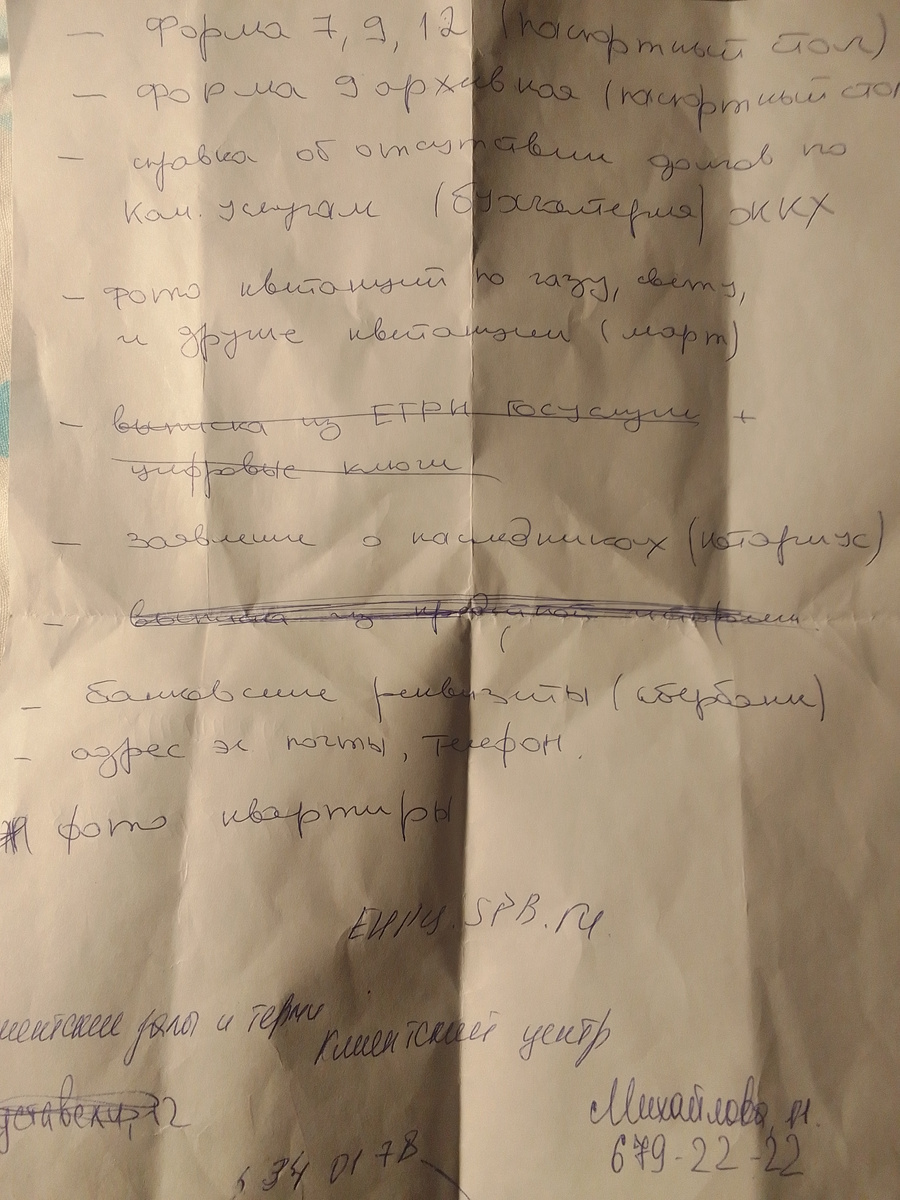 — Форма 7, 9, 12 (паспортный стол)
— Форма 9 архивная (паспортный стол
— справка об отсутствии долгов по
ком. услугам (бухгалтерия) ЖКХ
— фото квитанций по газу, свету,
и другие квитанции (март)
— выписка из ЕГРН Госуслуги +
цифровые ключи
— заявление о наследниках (нотариус)
— выписка из
— банковские реквизиты (сбербанк)
— адрес эл. почты, телефон.
фото квартиры
ЕИРЦ.SPB.ru.
иентские залы и терми
Клиентский центр
12
Михайлова,
679-22-22
34 01 78